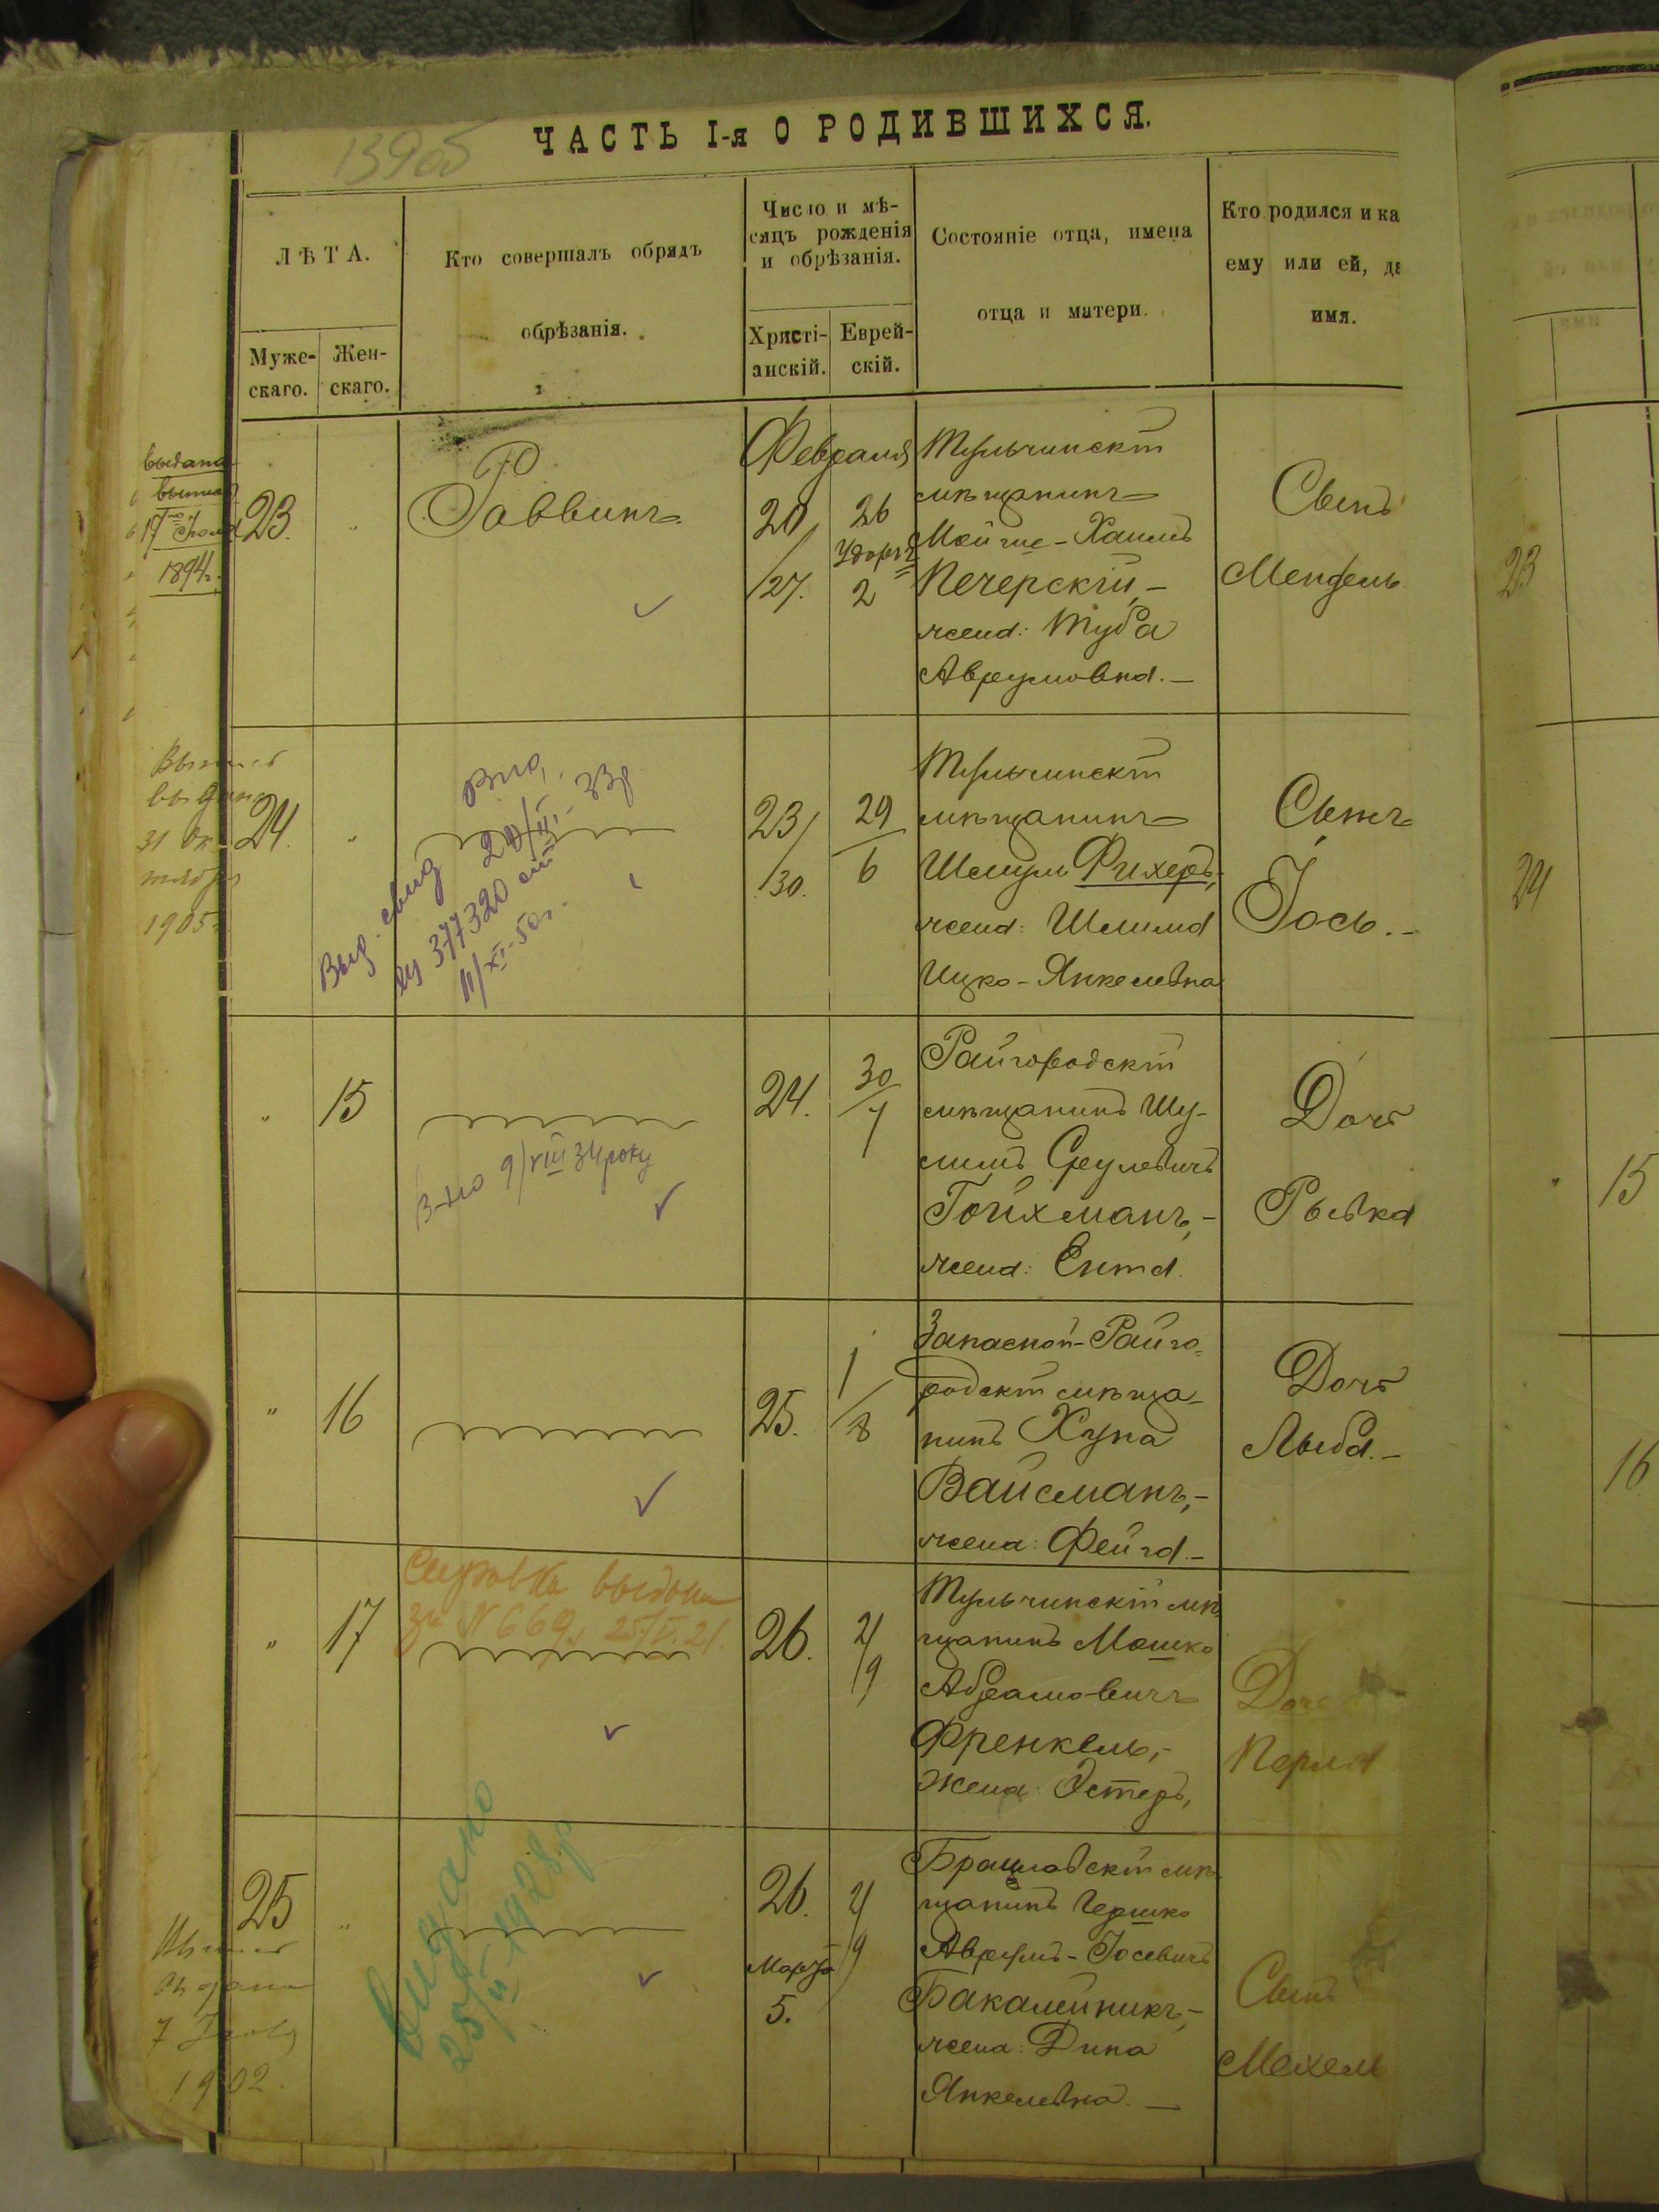 139 об
ЧАСТЬ I-я О РОДИВШИХСЯ.
ЛѢТА.
Муже-
скаго.
Жен-
скаго.
Кто совершалъ обрядъ
обрѣзанія.
Число и мѣ-
сяцъ рожденія
и обрѣзанія.
Христі-
анскій.
Еврей-
скій.
Состояніе отца, имена
отца и матери.
Кто родился и ка
ему или ей, да
имя.
выдана
1894г.
23.
"
Раввинъ
Февраля
20/
/27.
26
2
Тульчинскій
мѣщанинъ
Мойше-Хаимъ
Печерскій,-
жена: Туба
Аврумовна.-
Сынъ
Мендель
23
31 Ок
тября
1905
24.
"
Выд. свид
377320
11/XI-50г.
23/
/30.
29
6
Тульчинскій
мѣщанинъ
Шмулъ Фихеръ,
жена: Шлима
Ицко-Янкелевна
Сынъ
Іось.-
24
"
15
9/VIII 34 року
24.
30
/7
Райгородскій
мѣщанинъ Шу-
лимъ Срулевичъ
Гойхманъ,-
жена: Ента.
Дочь
Рывка
" 15
"
16
25.
1
/8
Запасной-Райго-
родскій мѣща-
нинъ Хуна
Вайсманъ,-
жена: Фейга.-
Дочь
Лыба.-
16
"
17
Справка выдана
за N 669, 25/V.21.
26.
2/
/9
Тульчинскій мѣ-
щанинъ Мошко
Абрамовичъ
Френкель,-
Жена: Эстеръ,
Дочь
Перля
7
1902.
25
"
видано
1928р
26.
Марта
5.
2/
/9
Брацлавскій мѣ-
щанинъ Гершко
Аврумъ-Іосевичъ
Бакалейникъ,-
жена: Дина
Янкелевна.-
Сынъ
Мехель